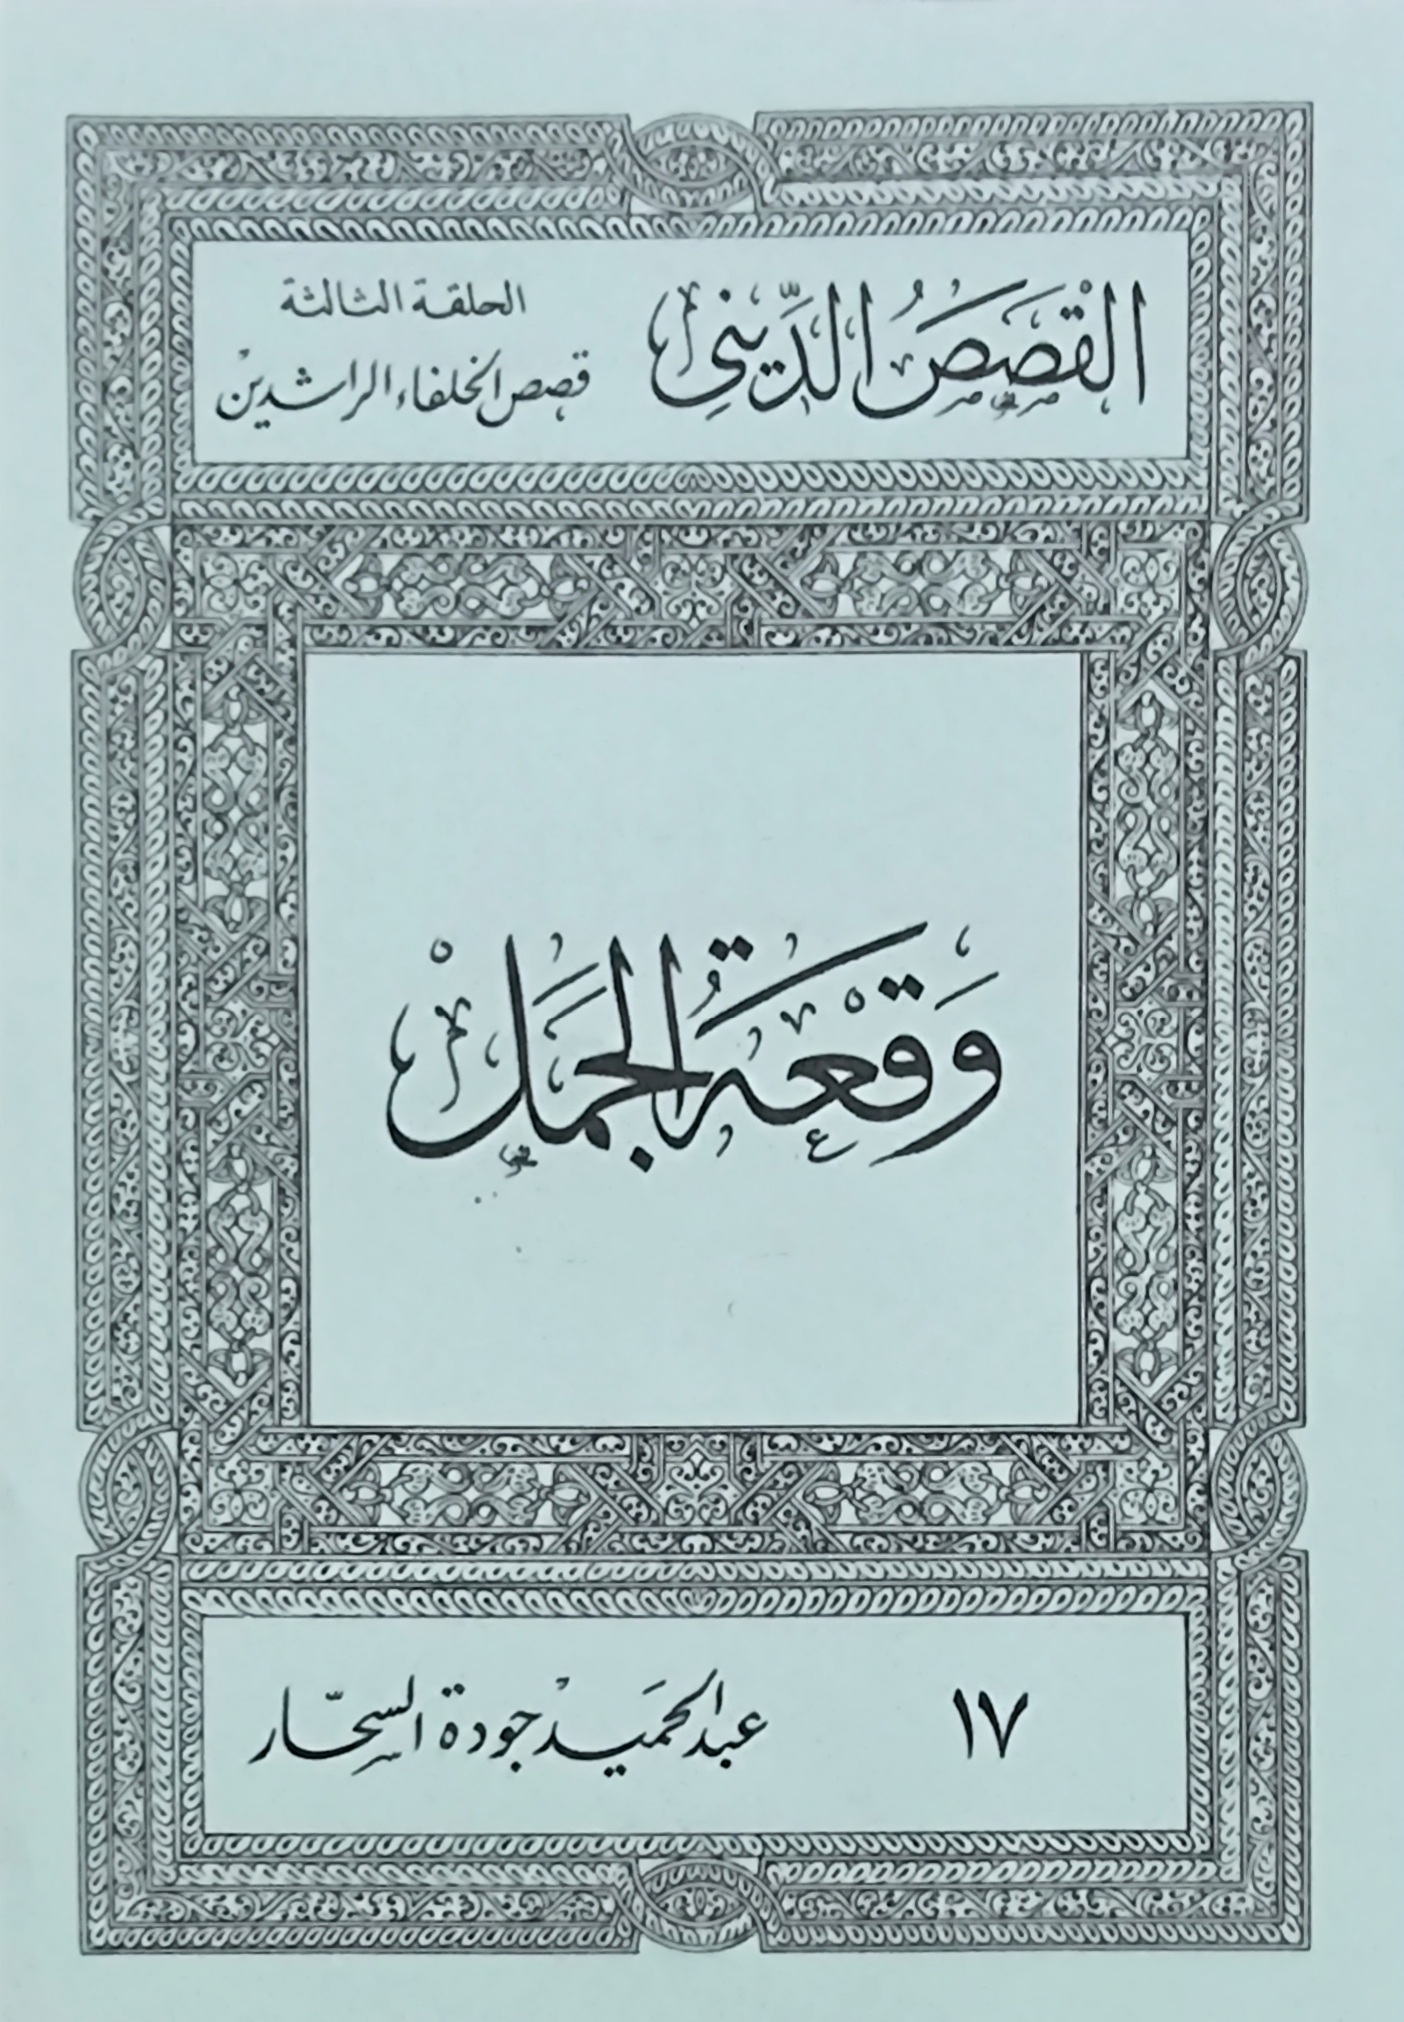 القَصَصُ الدِّيني
الحلقة الثالثة
قصص الخلفاء الراشدين
وَقْعَةُ الجَمَل
١٧
عبد الحَميد جودة السحّار